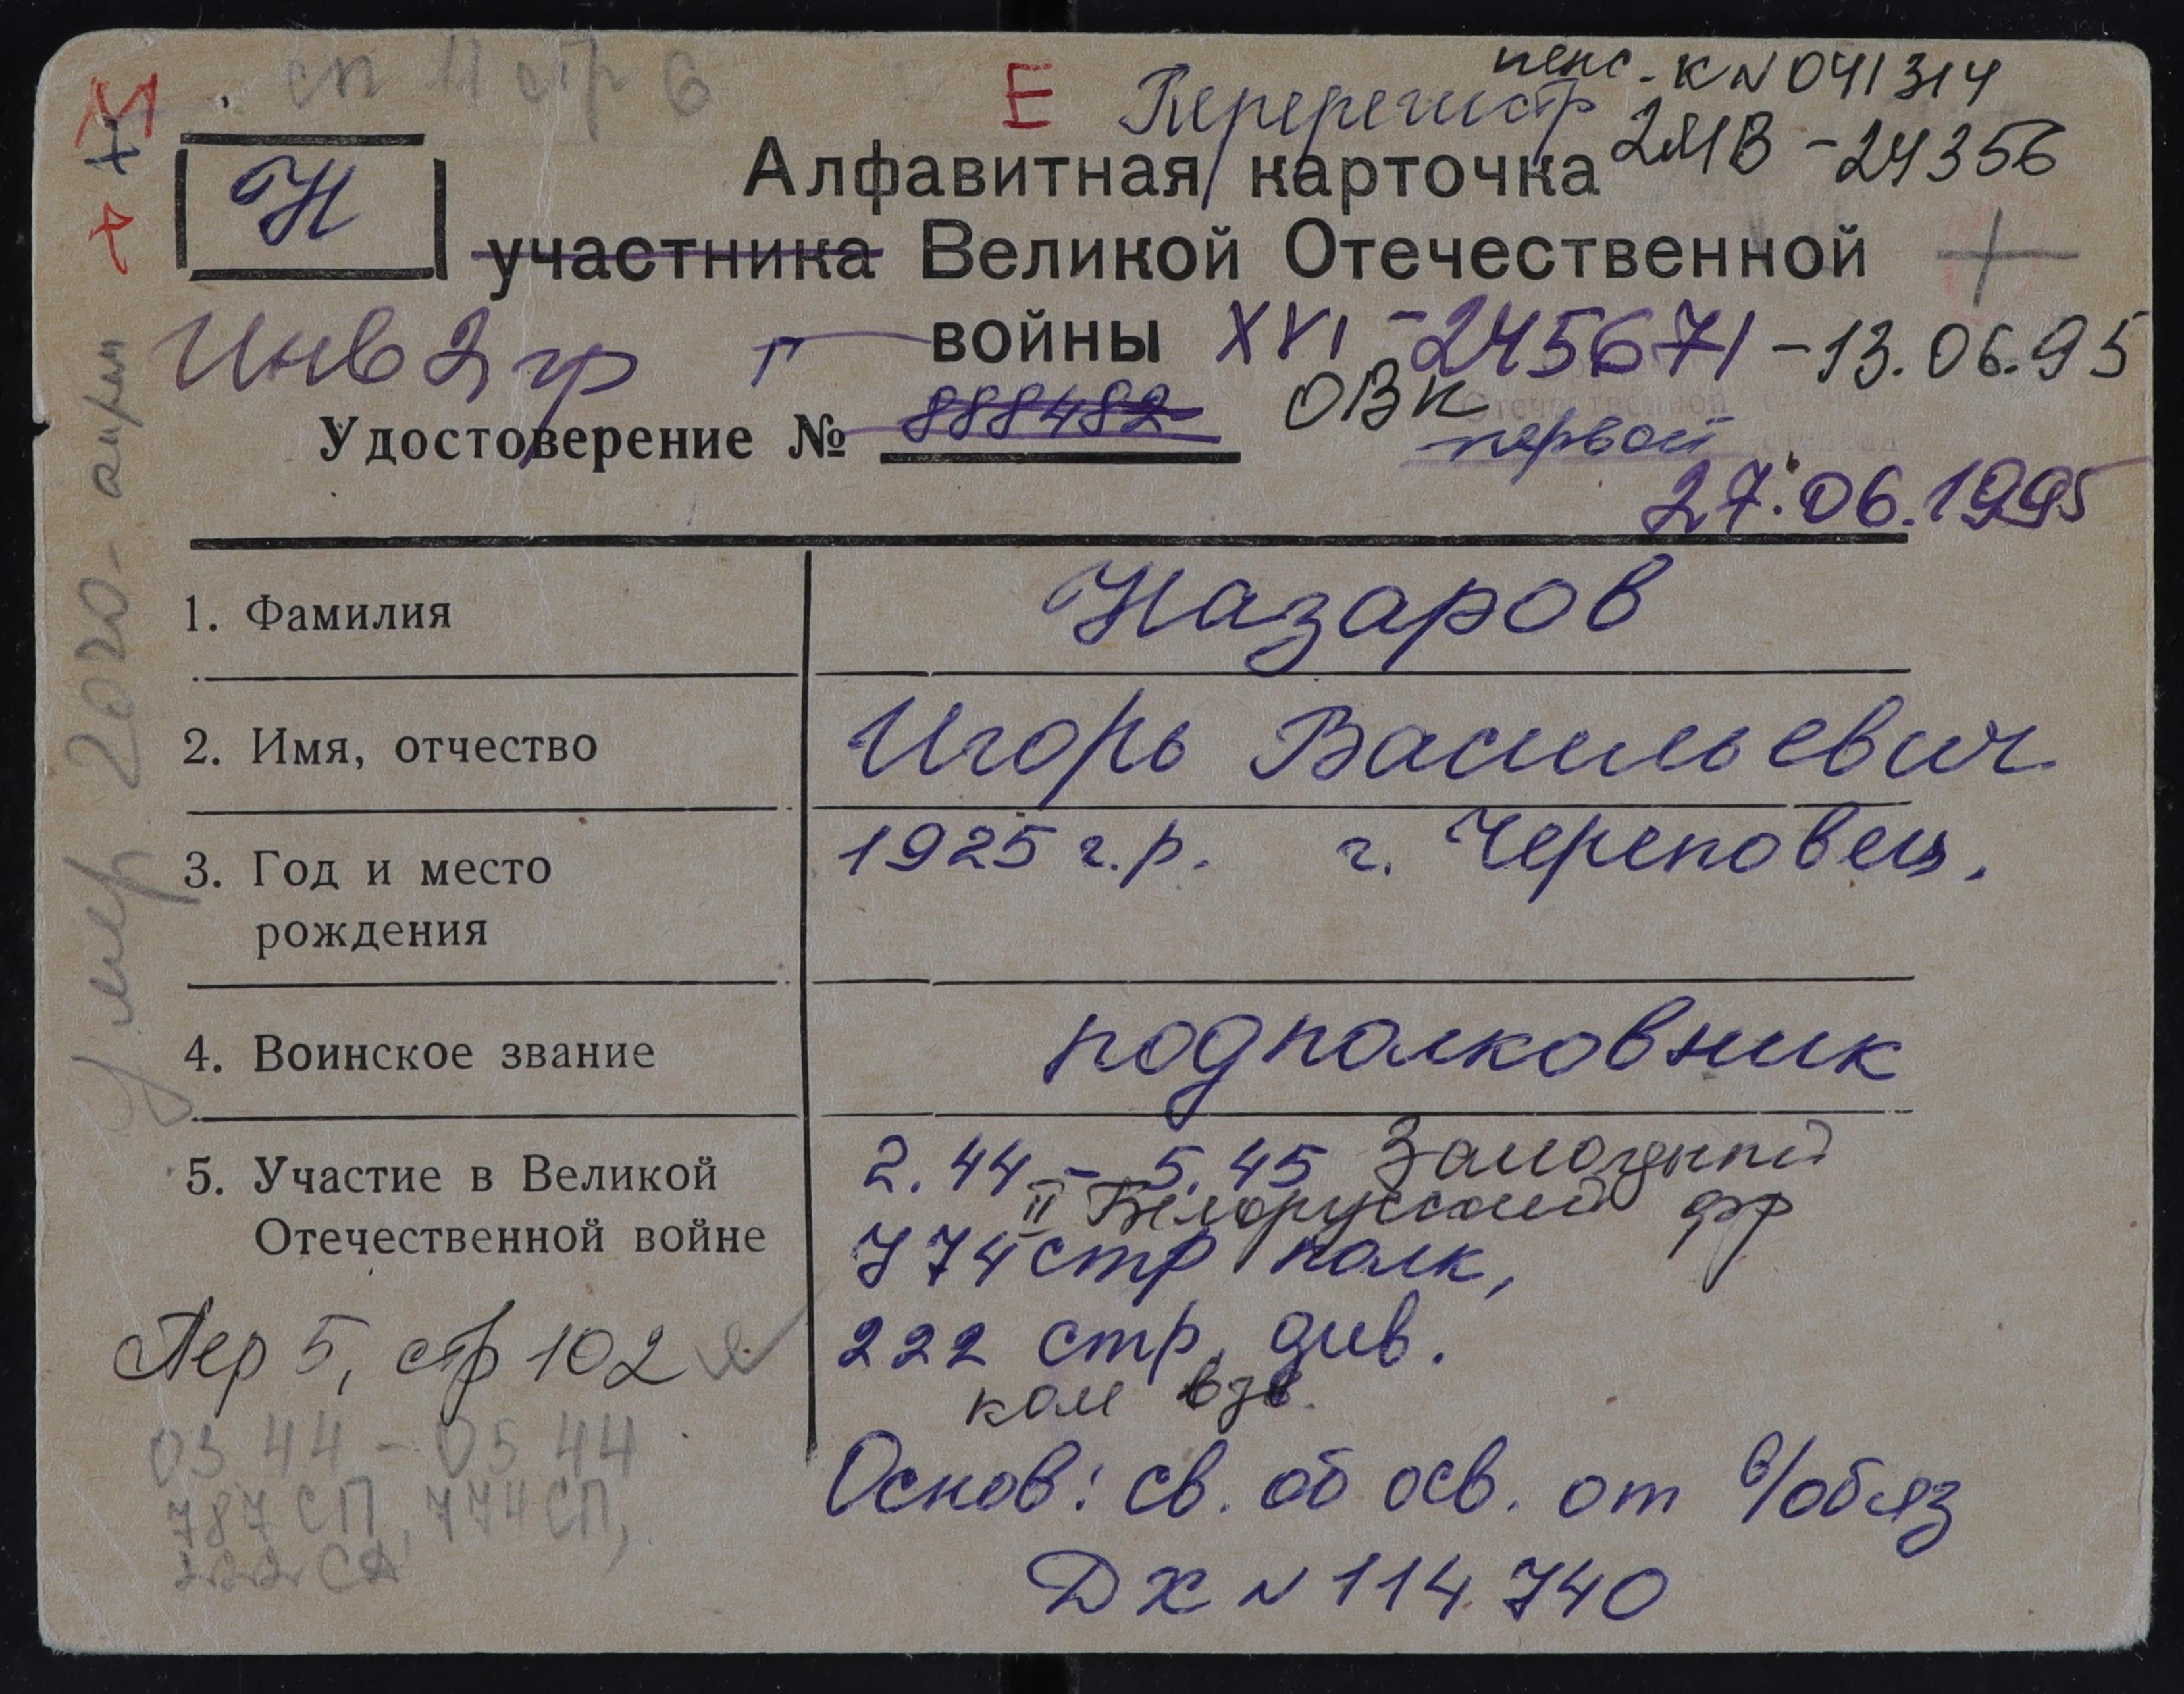 сп 11 стр 6
М
Е
Перерегистр
пенс. К N 041314
Н
Алфавитная карточка
2МВ - 24356
участника Великой Отечественной
Инв 2 гр
войны XVI - 245671 - 13.06.95
ОВК
Удостоверение № 888482
первой
27.06.1995
1. Фамилия
Назаров
2. Имя, отчество
Игорь Васильевич
3. Год и место
рождения
1925 г.р. г. Череповец.
4. Воинское звание
подполковник
5. Участие в Великой
Отечественной войне
2.44 - 5.45 Западный
II Белорусский фр
774 стр полк,
222 стр. див.
ком взв.
Основ: св. об осв. от в/обяз
ДХ N 114740
Пер 5, стр 102
03 44 - 05 44
787 СП, 774 СП,
222 СД
Умер 2020 - апрель